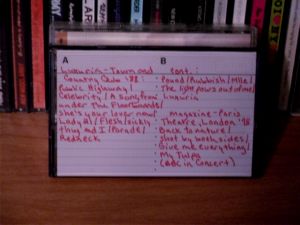 A
Luxuria - Town and
Country Club '88 -
Public Highway/
Celebrity/A song from
under The Floorboards/
She's your lover now/
Lady 21/Flesh/sickly
thug and I/Parade/
Redneck
B
cont.
Pound/Rubbish/Mlle/
The light pours out of me/
Luxuria
Magazine - Paris
Theatre, London '78
Back to nature/
shot by both sides/
Give me everything/
My Tulpa
(BBC in Concert)